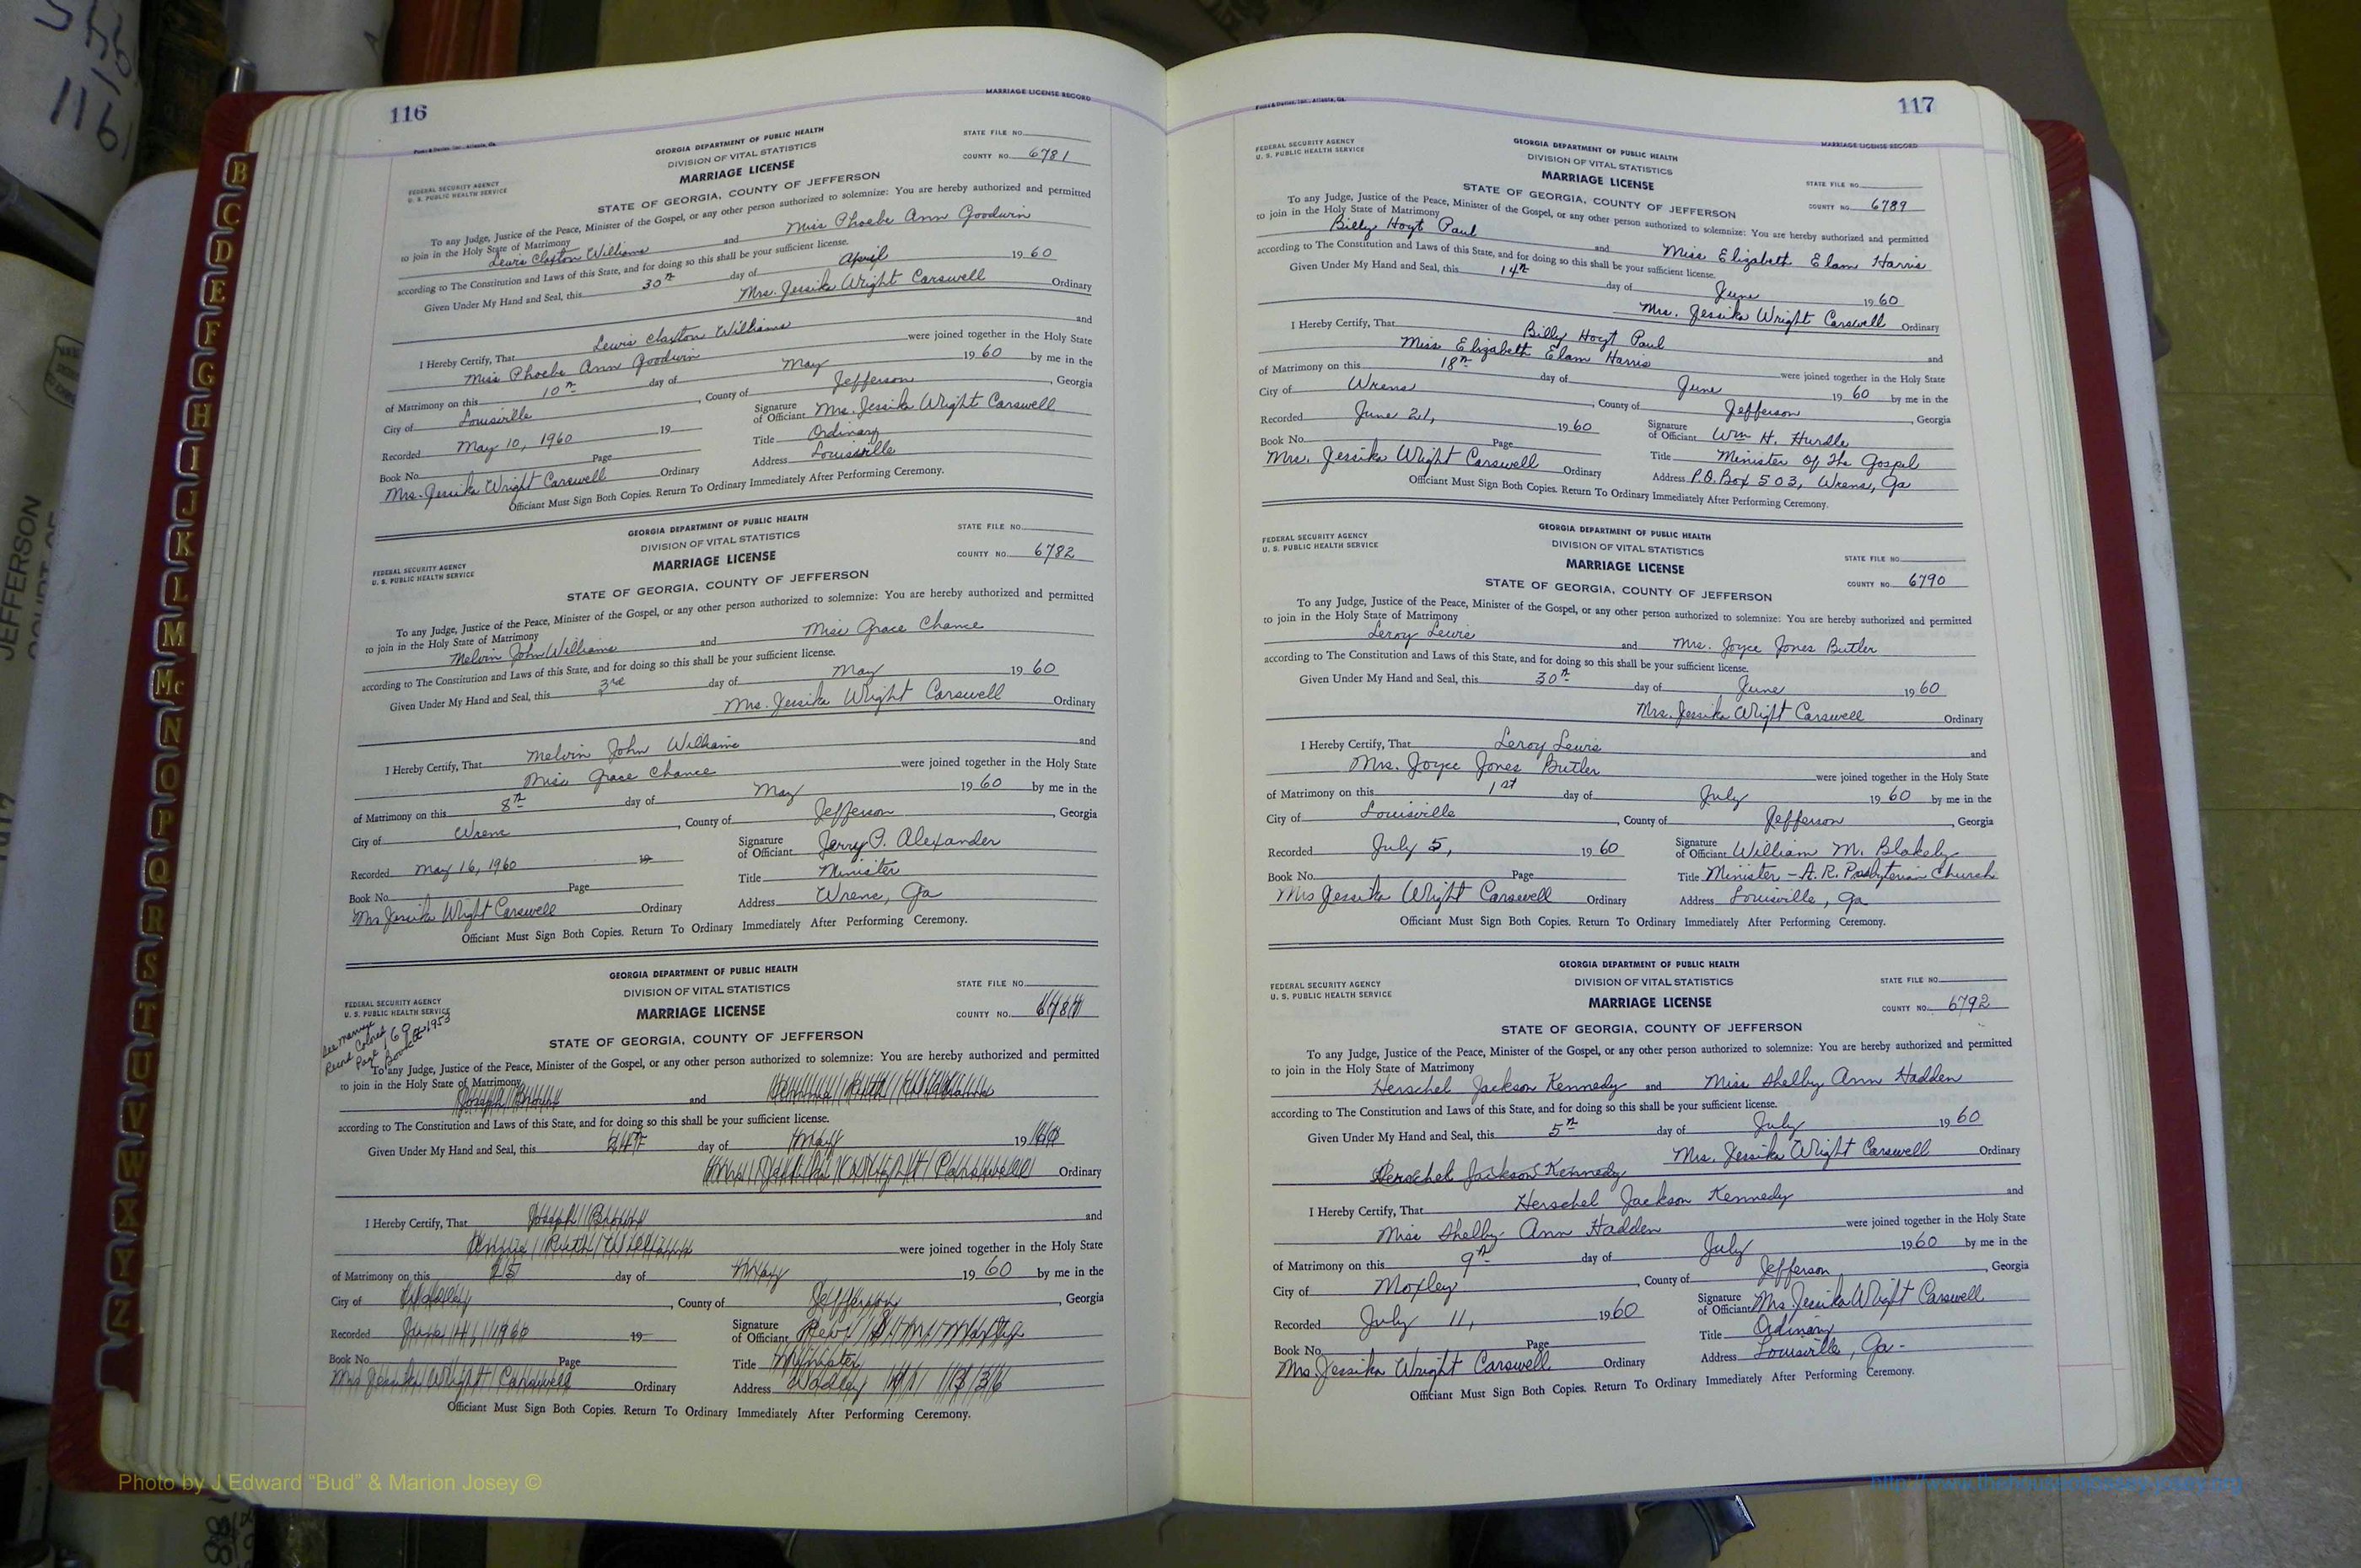 116
MARRIAGE LICENSE RECORD
GEORGIA DEPARTMENT OF PUBLIC HEALTH
DIVISION OF VITAL STATISTICS
MARRIAGE LICENSE
STATE FILE NO.
COUNTY NO. 6781
FEDERAL SECURITY AGENCY
U. S. PUBLIC HEALTH SERVICE
STATE OF GEORGIA, COUNTY OF JEFFERSON
To any Judge, Justice of the Peace, Minister of the Gospel, or any other person authorized to solemnize: You are hereby authorized and permitted
to join in the Holy State of Matrimony
Lewis Claxton Williams and Miss Phoebe Ann Goodwin
according to The Constitution and Laws of this State, and for doing so this shall be your sufficient license.
Given Under My Hand and Seal, this 30th day of April 1960
Mrs. Jessika Wright Carswell Ordinary
I Hereby Certify, That Lewis Claxton Williams and
Miss Phoebe Ann Goodwin were joined together in the Holy State
of Matrimony on this 10th day of May 1960 by me in the
City of Louisville, County of Jefferson, Georgia
Recorded May 10, 1960 19
Signature of Officiant Mrs. Jessika Wright Carswell
Title Ordinary
Book No. Page
Address Louisville
Mrs. Jessika Wright Carswell Ordinary
Officiant Must Sign Both Copies. Return To Ordinary Immediately After Performing Ceremony.
GEORGIA DEPARTMENT OF PUBLIC HEALTH
DIVISION OF VITAL STATISTICS
MARRIAGE LICENSE
STATE FILE NO.
COUNTY NO. 6782
FEDERAL SECURITY AGENCY
U. S. PUBLIC HEALTH SERVICE
STATE OF GEORGIA, COUNTY OF JEFFERSON
To any Judge, Justice of the Peace, Minister of the Gospel, or any other person authorized to solemnize: You are hereby authorized and permitted
to join in the Holy State of Matrimony
Melvin John Williams and Miss Grace Chance
according to The Constitution and Laws of this State, and for doing so this shall be your sufficient license.
Given Under My Hand and Seal, this 3rd day of May 1960
Mrs. Jessika Wright Carswell Ordinary
I Hereby Certify, That Melvin John Williams and
Miss Grace Chance were joined together in the Holy State
of Matrimony on this 8th day of May 1960 by me in the
City of Wrens, County of Jefferson, Georgia
Recorded May 16, 1960 19
Signature of Officiant Jerry P. Alexander
Title Minister
Book No. Page
Address Wrens, Ga
Mrs Jessika Wright Carswell Ordinary
Officiant Must Sign Both Copies. Return To Ordinary Immediately After Performing Ceremony.
GEORGIA DEPARTMENT OF PUBLIC HEALTH
DIVISION OF VITAL STATISTICS
MARRIAGE LICENSE
STATE FILE NO.
COUNTY NO.
FEDERAL SECURITY AGENCY
U. S. PUBLIC HEALTH SERVICE
See Marriage
Record Colored
Page 169
Book 1953
STATE OF GEORGIA, COUNTY OF JEFFERSON
To any Judge, Justice of the Peace, Minister of the Gospel, or any other person authorized to solemnize: You are hereby authorized and permitted
to join in the Holy State of Matrimony
Joseph Brown and Ruth Williams
according to The Constitution and Laws of this State, and for doing so this shall be your sufficient license.
Given Under My Hand and Seal, this day of May 19
Mrs Jessika Wright Carswell Ordinary
I Hereby Certify, That Joseph Brown and
Annie Ruth Williams were joined together in the Holy State
of Matrimony on this day of May 1960 by me in the
City of Wadley, County of Jefferson, Georgia
Recorded June 1960 19
Signature of Officiant Rev.
Title Minister
Book No. Page
Address Wadley
Mrs Jessika Wright Carswell Ordinary
Officiant Must Sign Both Copies. Return To Ordinary Immediately After Performing Ceremony.
117
MARRIAGE LICENSE RECORD
FEDERAL SECURITY AGENCY
U. S. PUBLIC HEALTH SERVICE
GEORGIA DEPARTMENT OF PUBLIC HEALTH
DIVISION OF VITAL STATISTICS
MARRIAGE LICENSE
STATE FILE NO.
COUNTY NO. 6789
STATE OF GEORGIA, COUNTY OF JEFFERSON
To any Judge, Justice of the Peace, Minister of the Gospel, or any other person authorized to solemnize: You are hereby authorized and permitted
to join in the Holy State of Matrimony
Billy Hoyt Paul and Miss Elizabeth Elam Harris
according to The Constitution and Laws of this State, and for doing so this shall be your sufficient license.
Given Under My Hand and Seal, this 14th day of June 1960
Mrs. Jessika Wright Carswell Ordinary
I Hereby Certify, That Billy Hoyt Paul and
Miss Elizabeth Elam Harris were joined together in the Holy State
of Matrimony on this 18th day of June 1960 by me in the
City of Wrens, County of Jefferson, Georgia
Recorded June 21, 1960
Signature of Officiant Wm H. Hurdle
Title Minister Of The Gospel
Book No. Page
Address P.O. Box 503, Wrens, Ga
Mrs. Jessika Wright Carswell Ordinary
Officiant Must Sign Both Copies. Return To Ordinary Immediately After Performing Ceremony.
GEORGIA DEPARTMENT OF PUBLIC HEALTH
DIVISION OF VITAL STATISTICS
MARRIAGE LICENSE
FEDERAL SECURITY AGENCY
U. S. PUBLIC HEALTH SERVICE
STATE FILE NO.
COUNTY NO. 6790
STATE OF GEORGIA, COUNTY OF JEFFERSON
To any Judge, Justice of the Peace, Minister of the Gospel, or any other person authorized to solemnize: You are hereby authorized and permitted
to join in the Holy State of Matrimony
Leroy Lewis and Mrs. Joyce Jones Butler
according to The Constitution and Laws of this State, and for doing so this shall be your sufficient license.
Given Under My Hand and Seal, this 30th day of June 1960
Mrs. Jessika Wright Carswell Ordinary
I Hereby Certify, That Leroy Lewis and
Mrs. Joyce Jones Butler were joined together in the Holy State
of Matrimony on this 1st day of July 1960 by me in the
City of Louisville, County of Jefferson, Georgia
Recorded July 5, 1960
Signature of Officiant William M. Blakely
Title Minister - A. R. Presbyterian Church
Book No. Page
Address Louisville, Ga
Mrs Jessika Wright Carswell Ordinary
Officiant Must Sign Both Copies. Return To Ordinary Immediately After Performing Ceremony.
GEORGIA DEPARTMENT OF PUBLIC HEALTH
DIVISION OF VITAL STATISTICS
MARRIAGE LICENSE
FEDERAL SECURITY AGENCY
U. S. PUBLIC HEALTH SERVICE
STATE FILE NO.
COUNTY NO. 6792
STATE OF GEORGIA, COUNTY OF JEFFERSON
To any Judge, Justice of the Peace, Minister of the Gospel, or any other person authorized to solemnize: You are hereby authorized and permitted
to join in the Holy State of Matrimony
Herschel Jackson Kennedy and Miss Shelby Ann Hadden
according to The Constitution and Laws of this State, and for doing so this shall be your sufficient license.
Given Under My Hand and Seal, this 5th day of July 1960
Mrs. Jessika Wright Carswell Ordinary
Herschel Jackson Kennedy
I Hereby Certify, That Herschel Jackson Kennedy and
Miss Shelby Ann Hadden were joined together in the Holy State
of Matrimony on this 9th day of July 1960 by me in the
City of Moxley, County of Jefferson, Georgia
Recorded July 11, 1960
Signature of Officiant Mrs Jessika Wright Carswell
Title Ordinary
Book No. Page
Address Louisville, Ga.
Mrs Jessika Wright Carswell Ordinary
Officiant Must Sign Both Copies. Return To Ordinary Immediately After Performing Ceremony.
B
C
D
E
F
G
H
I
J
K
L
M
Mc
N
O
P
Q
R
S
T
U
V
W
X
Y
Z
116
JEFFERSON
Photo by J Edward “Bud” & Marion Josey ©